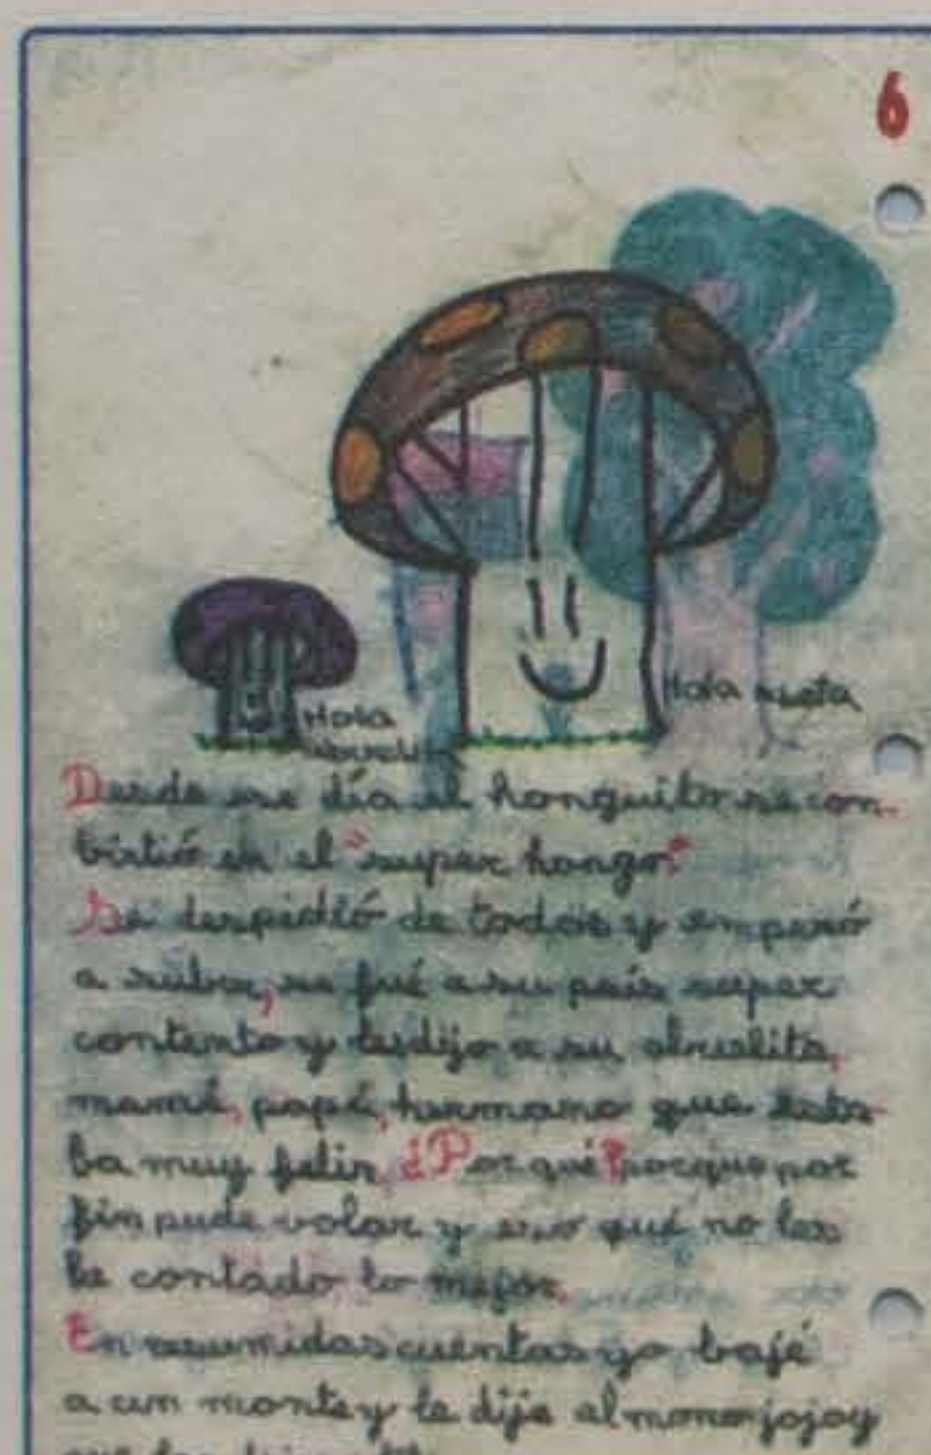 6
Hola nieta
Hola
abuelita
Desde ese día el honguito se con-
birtió en el "super hongo".
Se despidió de todos y empezó
a subir, se fué a su país super
contento y les dijo a su abuelita,
mamá, papá, hermano que esta-
ba muy feliz, ¿Por qué? porque por
fin pude volar y eso qué no les
he contado lo mejor.
En resumidas cuentas yo bajé
a un monte y le dije al mono jojoy